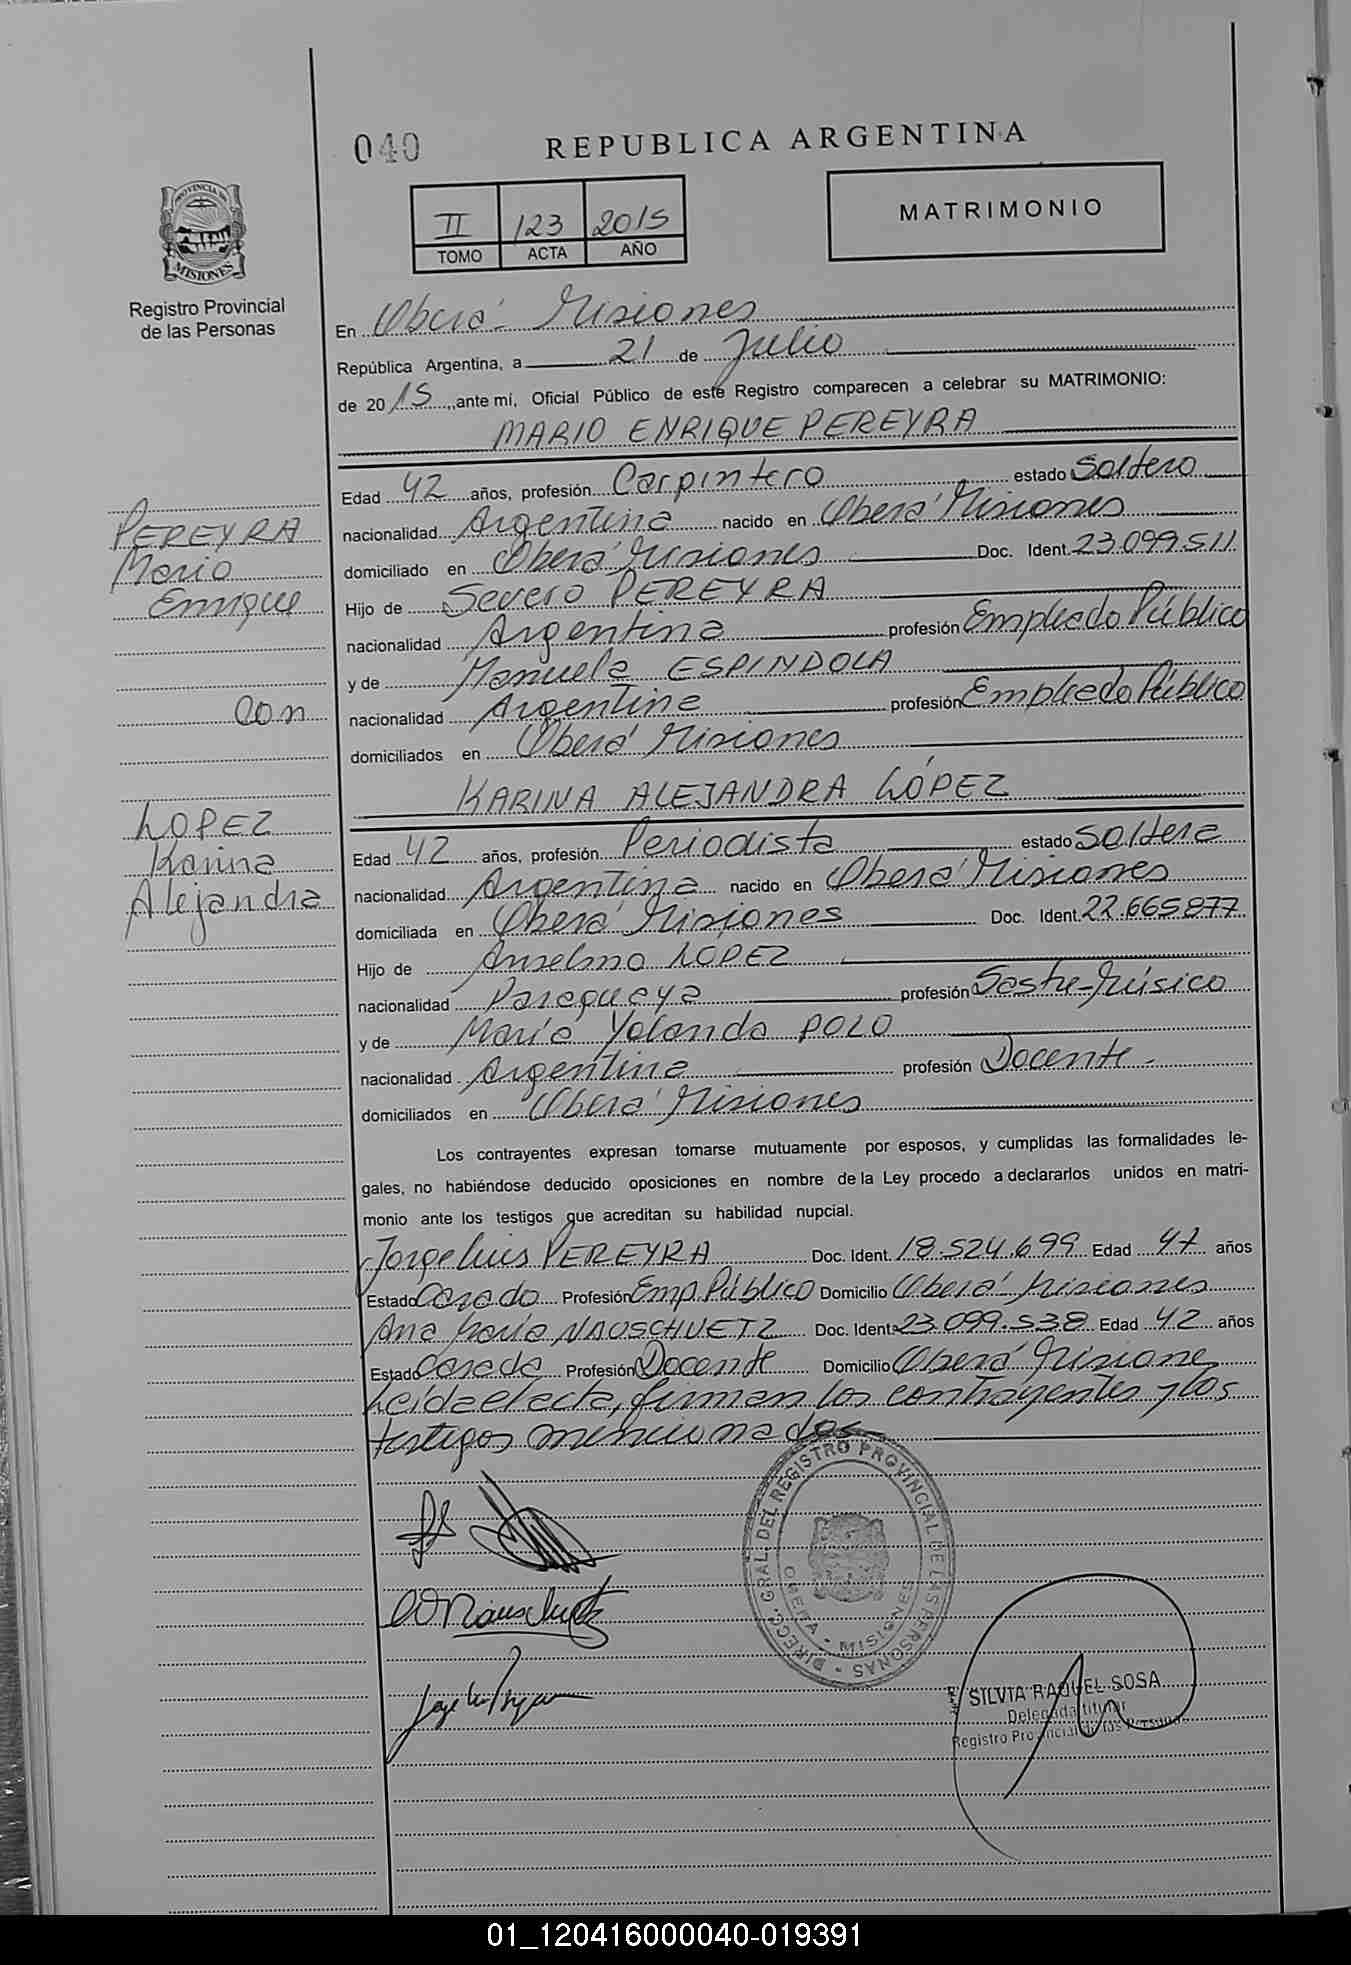 040
REPUBLICA ARGENTINA
PROVINCIA DE
MISIONES
Registro Provincial
de las Personas
II 123 2015
TOMO ACTA AÑO
MATRIMONIO
En Oberá - Misiones
República Argentina, a 21 de Julio
de 2015, ante mí, Oficial Público de este Registro comparecen a celebrar su MATRIMONIO:
MARIO ENRIQUE PEREYRA
Edad 42 años, profesión Carpintero estado Soltero
nacionalidad Argentina nacido en Oberá Misiones
domiciliado en Oberá Misiones Doc. Ident. 23.099.511
Hijo de Severo PEREYRA
nacionalidad Argentina profesión Empleado Público
y de Manuela ESPINDOLA
nacionalidad Argentina profesión Empleado Público
domiciliados en Oberá Misiones
KARINA ALEJANDRA LÓPEZ
Edad 42 años, profesión Periodista estado Soltera
nacionalidad Argentina nacido en Oberá Misiones
domiciliada en Oberá Misiones Doc. Ident. 22.665.877
Hijo de Anselmo LOPEZ
nacionalidad Paraguaya profesión Sastre-Músico
y de María Yolanda POLO
nacionalidad Argentina profesión Docente -
domiciliados en Oberá Misiones
PEREYRA
Mario
Enrique
con
LOPEZ
Karina
Alejandra
Los contrayentes expresan tomarse mutuamente por esposos, y cumplidas las formalidades le-
gales, no habiéndose deducido oposiciones en nombre de la Ley procedo a declararlos unidos en matri-
monio ante los testigos que acreditan su habilidad nupcial.
Jorge Luis PEREYRA Doc. Ident. 18.524.699 Edad 47 años
Estado Casado Profesión Emp. Público Domicilio Oberá Misiones
Ana María NAUSCHUETZ Doc. Ident. 23.099.538 Edad 42 años
Estado Casada Profesión Docente Domicilio Oberá Misiones
Leída el acta, firman los contrayentes y los
testigos mencionados
DIRECC. GRAL. DEL REGISTRO PROVINCIAL DE LAS PERSONAS
MISIONES
SILVIA RAQUEL SOSA
Delegada titular
Registro Provincial de las Personas
01_120416000040-019391